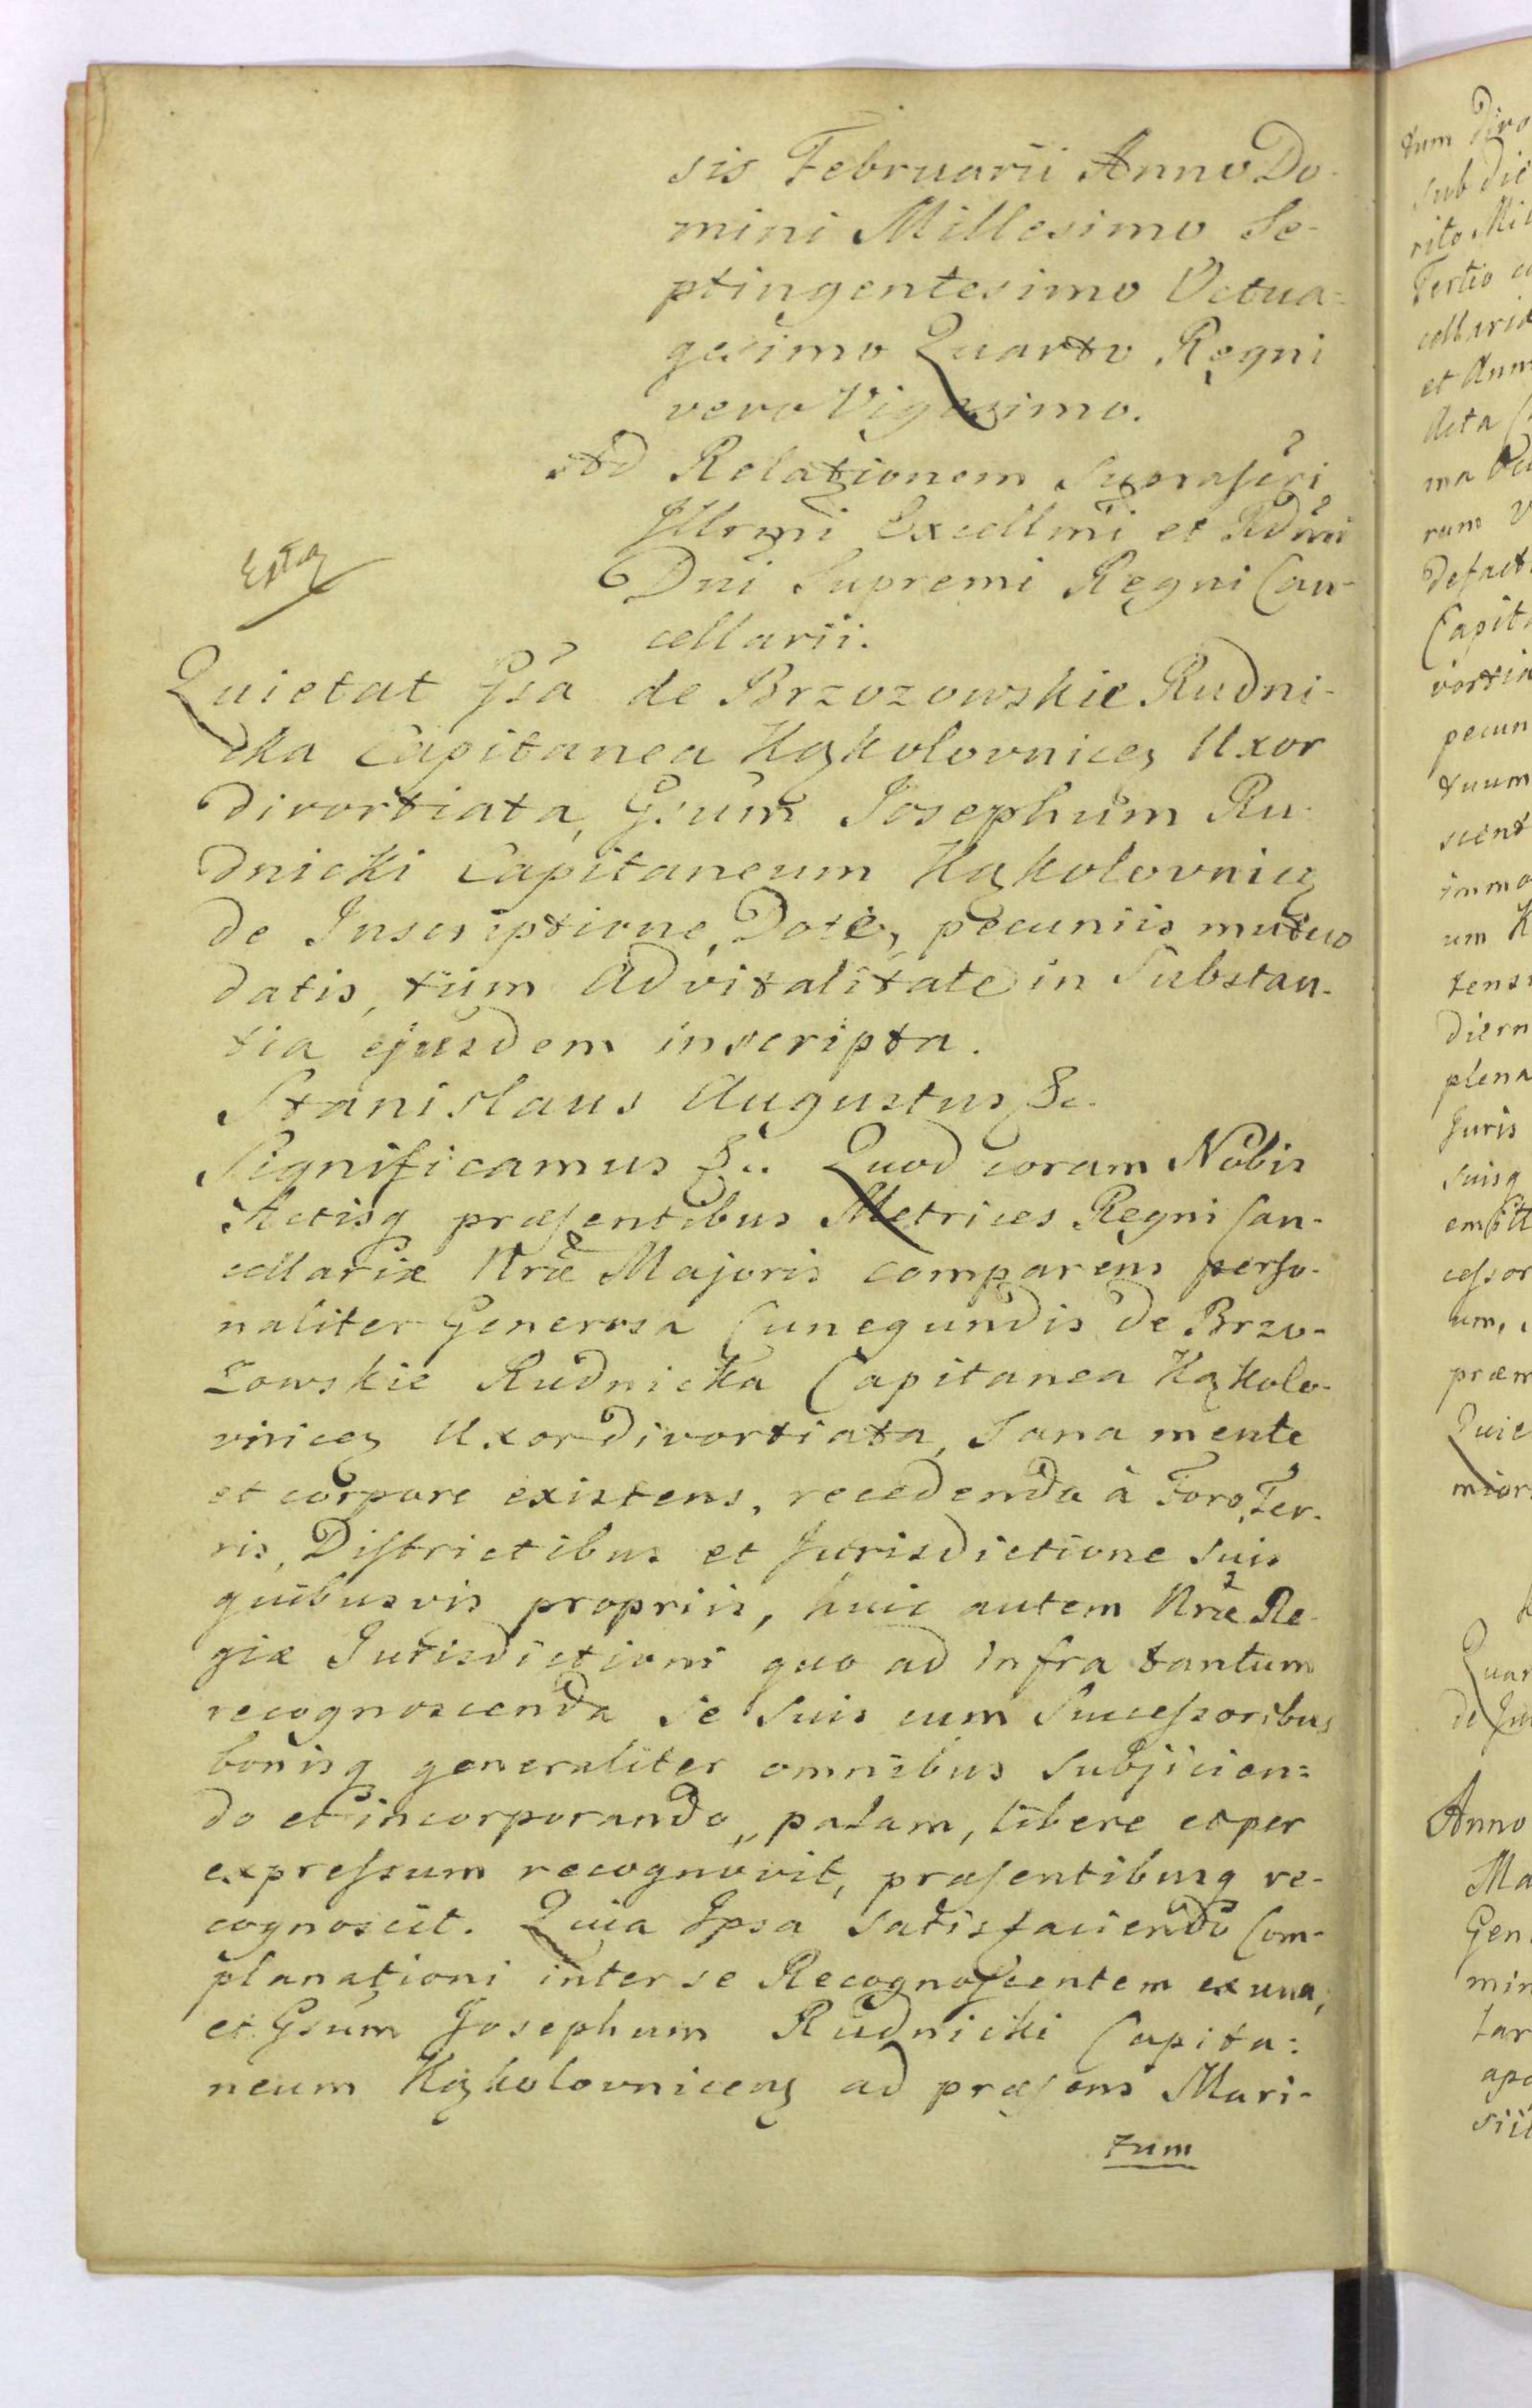 sis Februarii Anno Do-
mini Millesimo Se-
ptingentesimo Octua=
gesimo Quarto Regni
vero Vigesimo.
Ad Relationem Suprascri
Illrmi Excellmi et Rdmi
Dni Supremi Regni Can-
cellarii.
Quietat Gsa de Brzozowskie Rudni-
cka Capitanea Kąkolovnicen Uxor
divortiata, Gsum Josephum Ru-
dnicki Capitaneum Kąkolovnicen
de Inscriptione, Dote, pecuniis mutuo
datis, tum Advitalitate in Substan-
tia ejusdem inscripta.
Stanislaus Augustus &c.
Significamus &c. Quod coram Nobis
Actisq præsentibus Metrices Regni Can-
cellariæ Nræ Majoris comparens perso-
naliter Generosa Cunegundis de Brzo-
zowskie Rudnicka Capitanea Kąkolo-
vnicen Uxor divortiata, Sana mente
et corpore existens, recedendo à Foro, Ter-
ris, Districtibus et Jurisdictione suis
quibusvis propriis, huic autem Nræ Re-
giæ Jurisdictioni quo ad infra tantum
recognoscenda se suis cum Successoribus
bonisq generaliter omnibus subjicien=
do et incorporando, palam, libere et per
expressum recognovit, præsentibusq re-
cognoscit. Quia Ipsa Satisfaciendo Com-
planationi inter se Recognoscentem ex una,
et Gsum Josephum Rudnicki Capita=
neum Kąkolovnicens ad præsens Mari-
tum
tum Divo
sub die
Tertio
cellaria
et Ann
Acta
rum
Defact
Capit
pecun
scient
tens
diern
plena
Juris
suisq
cessor
um,
Quie
Quar
Anno
Ma
Gen